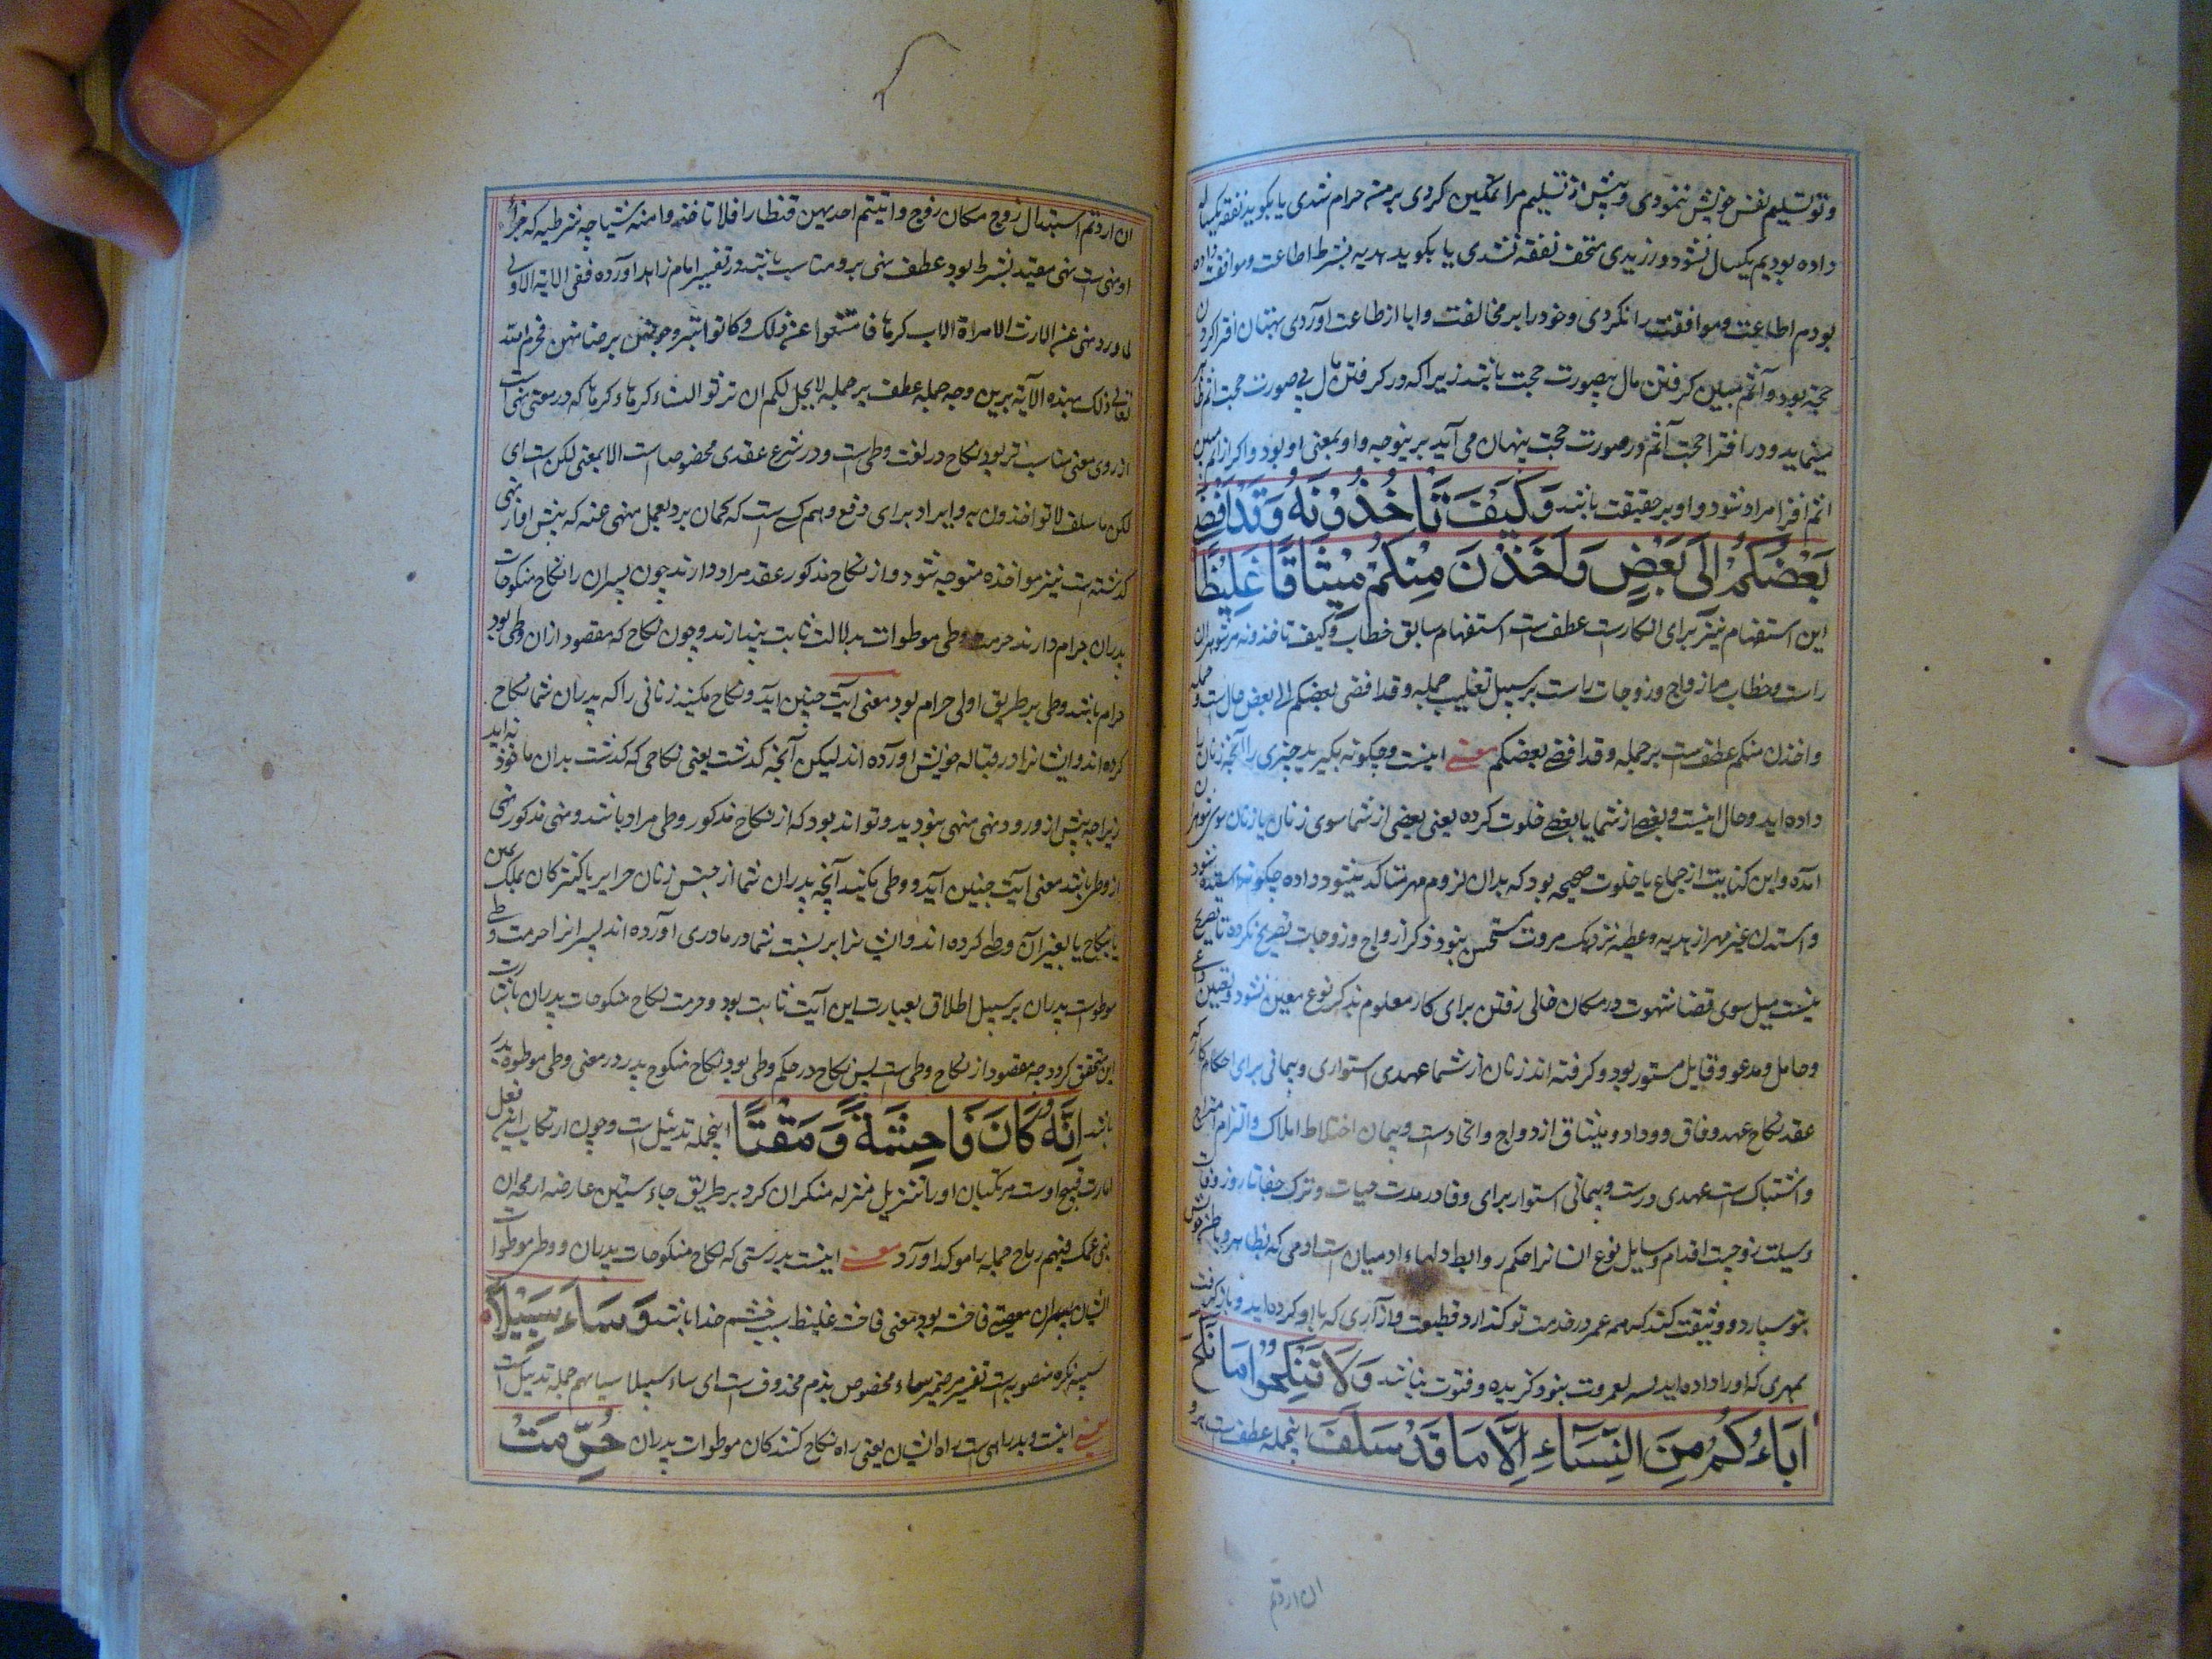 و تو تسلیم نفس خویش ننمودی و پیش از تسلیم مرا تمکین کردی بر من حرام شدی یا بکوید نفقه یکساله
داده بودیم یکسال نشوز ورزیدی مستحق نفقه نشدی یا بکوید هدیه بشرط اطاعت و موافقت داده
بودم اطاعت و موافقت را نکردی و خود را بر مخالفت و ابا از طاعت آوردی بهتان افترا کردن
حجة بود و آثم مبین کرفتن مال بصورت حجت باشد زیرا که در کرفتن مال بی صورت حجت اثم ظاهر
مینماید و در افترا حجت آثم در صورت حجت پنهان می آید برینوجه واو بمعنی او بود و اکر از اثم مبین
اثم افترا مراد شود واو بر حقیقت باشد وَكَيْفَ تَأْخُذُونَهُ وَقَدْ أَفْضَى
بَعْضُكُمْ إِلَى بَعْضٍ وَأَخَذْنَ مِنْكُمْ مِيثَاقًا غَلِيظًا
این استفهام نیز برای انکارست عطفست استفهام سابق خطاب و کیف تاخذونه مر شوهران
راست و خطاب مر ازواج و زوجات راست بر سبیل تغلیب جمله و قد افضی بعضکم الی بعض حال است و جمله
و اخذن منکم عطفست بر جمله و قد افضی بعضکم معنے اینست و چکونه بکیرید چیزی را آنچه زنان را
داده اید و حال اینست و بعضی از شما با بعضی خلوت کرده یعنی بعضی از شما سوی زنان یا زنان سوی شوهران
آمده و این کنایت از جماع یا خلوت صحیحه بود که بدان لزوم مهر متاکد میشود داده چکونه استده شود
و استدن غیر مهر از هدیه و عطیه نزدیک مروت مستحسن نبود ذکر ازواج و زوجات تصریح نکرده تا تصریح
نیست میل سوی قضا شهوت در مکان خالی رفتن برای کار معلوم بذکر نوع معین نشود و تعیین داعی
و حامل و مدعو و قایل مستور بود و کرفته اند زنان از شما عهدی استواری و پیمانی برای احکام کار که
عقد نکاح عهد وفاق و وداد و میثاق ازدواج و اتحادست و پیمان اختلاط املاک و التزام امتزاج
و اشتباک است عهدی درست و پیمانی استوار برای وفا در مدت حیات و ترک جفا تا روز وفات
وسیلت زوجیت اقدام وسایل نوع انسانرا حکم روابط دلهاء ادمیان است ادمی که بظاهر و باطن خویش
بتو سپارد و وثیقت کند که همه عمر در خدمت تو کذارد قطیعت و آزاری که با او کرده اید و باز کرفت
مهری که او را داده اید مروت بنود و فتوت نباشد وَلَا تَنْكِحُوا مَا نَكَحَ
آبَاؤُكُمْ مِنَ النِّسَاءِ إِلَّا مَا قَدْ سَلَفَ اینجمله عطفست بر و
ان اردتم
ان اردتم استبدال زوج مکان زوج و آتیتم احدیهن قنطارا فلا تاخذوا منه شیئا چه شرطیه که جزاء
او نهی است نهی مقید بشرط بود عطف نهی برو مناسب باشد و در تفسیر امام زاهد آورده ففی الایة الاولی
لما ورد نهی عن الارث الامراة الاب کرها فامتنعوا عن ذلک و کانوا یتزوجهن برضا نهن فحرم الله
تعالی ذلک بهذه الآیة برین وجه جمله عطف بر جمله لا یحل لکم ان ترثوا النساء کرها کرها که در معنی نهی است
از روی معنی مناسب تر بود نکاح در لغت وطی است و در شرع عقدی مخصوص است الا بمعنی لکن است ای
لکن ما سلف لا تواخذون به و ایراد برای دفع وهم کسی است که کمان برد بعمل منهی عنه که پیش از نهی
کذشته است نیز مواخذه متوجه شود و از نکاح مذکور عقد مراد دارند چون پسران را نکاح منکوحات
پدران حرام دارند حرمت وطی موطوات بدلالت ثابت پندارند و چون نکاح که مقصود ازان وطی بود
حرام باشد وطی بر طریق اولی حرام بود معنی آیت چنین آید و نکاح مکنید زنانی را که پدران شما نکاح
کرده اند و ایشانرا در قباله خویش آورده اند لیکن آنچه کذشت یعنی نکاحی که کذشت بدان ماخوذ نه اید
زیرا چه پیش از ورود نهی منهی نبودید و تواند بود که از نکاح مذکور وطی مراد باشد و نهی مذکور نهی
از وطی باشد معنی آیت چنین آید و وطی مکنید آنچه پدران شما از جنس زنان حرایر یا کنیزکان بملک یمین
یا بنکاح یا بغیر آن وطی کرده اند و ایشانرا برنسبت شما در مادری آورده اند پسرانرا حرمت وطی
موطوات پدران بر سبیل اطلاق بعبارت این آیت ثابت بود و حرمت نکاح منکوحات پدران باشارت
این متحقق کردد چه مقصود از نکاح وطی است پس نکاح در حکم وطی بود نکاح منکوح پدر در معنی وطی موطوه پدر
باشد إِنَّهُ كَانَ فَاحِشَةً وَمَقْتًا اینجمله تدئیل است و چون ارتکاب این فعل
امارت قبیح اوست مرتکبان او را تنزیل منزله منکران کرد بر طریق جاء شقیق عارضا رمحه ان
بنی عمک فیهم رماح جمله را موکد آورد معنے اینست بدرستی که نکاح منکوحات پدران و وطی موطوات
ایشان پسران را معصیتی فاحشه بود معنی فاحشه غلیظ سبب خشم خدا باشد وَسَاءَ سَبِيلًا
سبیلا نکره منصوبه است تفسیر مر ضمیر ساء مخصوص بذم محذوف است ای ساء سبیلا سبیلهم جمله تدئیل است
معنے اینست و بد راهی است راه ایشان یعنی راه نکاح کنندکان موطوات پدران حُرِّمَتْ